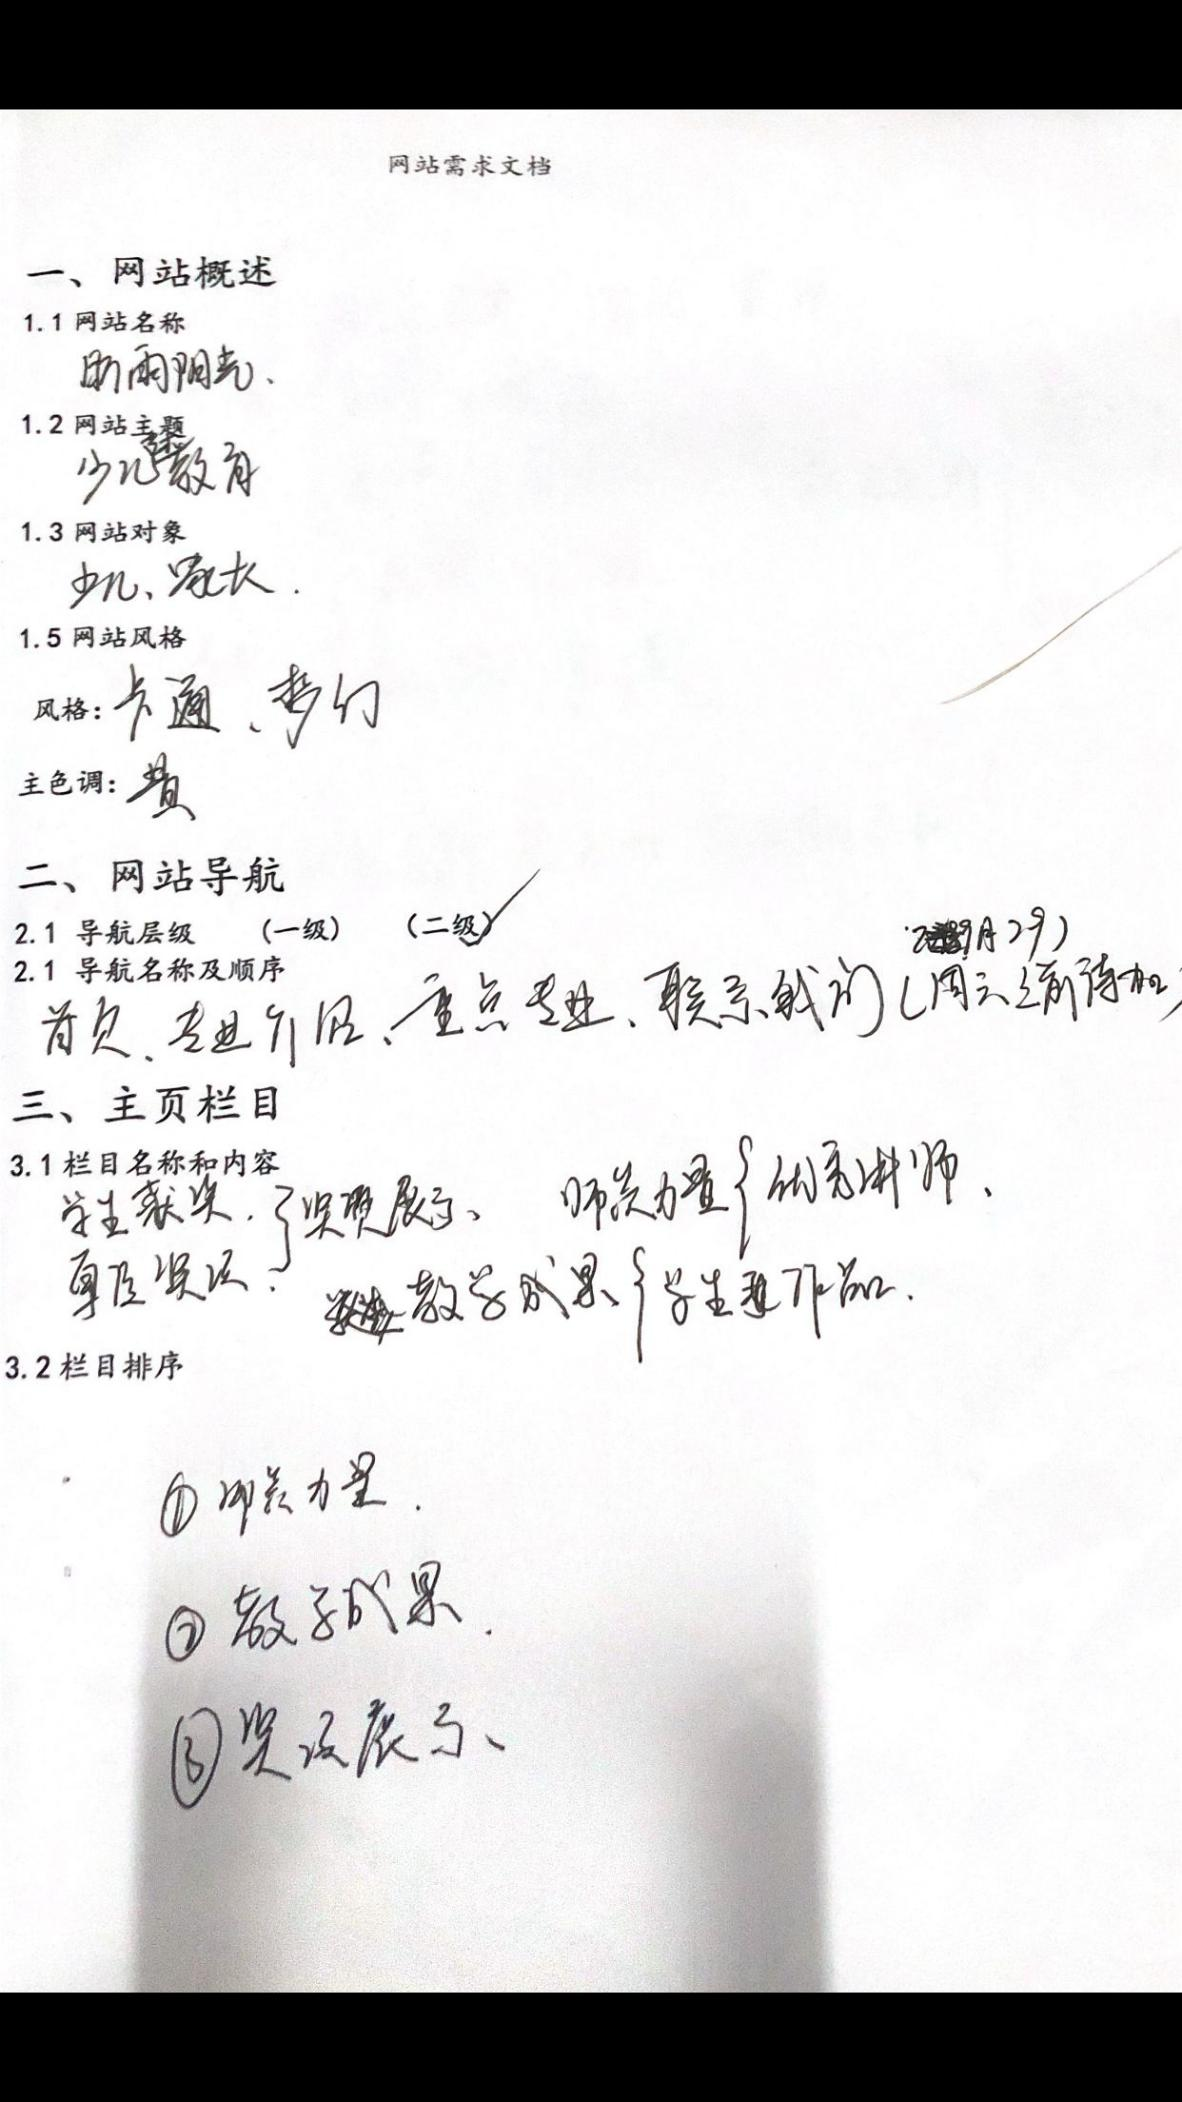 网站需求文档
一、网站概述
1.1 网站名称
雨阳光.
1.2 网站主题
少儿教育
1.3 网站对象
少儿、家长.
1.5 网站风格
风格：卡通、梦幻
主色调：黄
二、网站导航
2.1 导航层级 （一级） （二级）✓
2.1 导航名称及顺序
9月29)
首页、专业介绍、重点专业、联系我们（周三之前待加）
三、主页栏目
3.1 栏目名称和内容
学生获奖. } 奖项展示、 师资力量 { 优秀讲师、
奖项. 教学成果 { 学生作品.
3.2 栏目排序
① 师资力量.
② 教学成果.
③ 奖项展示、